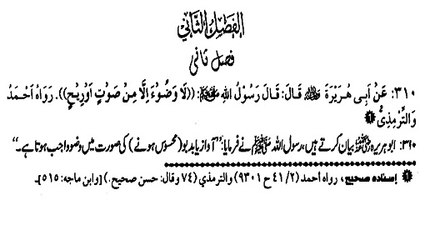 الفصل الثاني
فصل ثانی
۳۱۰: عَنْ أَبِي هُرَيْرَةَ ﷛ قَالَ: قَالَ رَسُولُ اللهِ ﷺ: ((لَا وُضُوْءَ إِلَّا مِنْ صَوْتٍ أَوْ رِيْحٍ)). رَوَاهُ أَحْمَدُ
وَالتِّرْمِذِيُّ
۳۱۰: ابو ہریرہ ﷛ بیان کرتے ہیں، رسول اللہ ﷺ نے فرمایا: ’’آواز یا بدبو (محسوس ہونے) کی صورت میں وضو واجب ہوتا ہے۔‘‘
إسناده صحيح، رواه أحمد (۲/ ٤١ ح ۹۳۰۱) والترمذي (٧٤ وقال: حسن صحيح.) [وابن ماجه: ٥١٥]۔